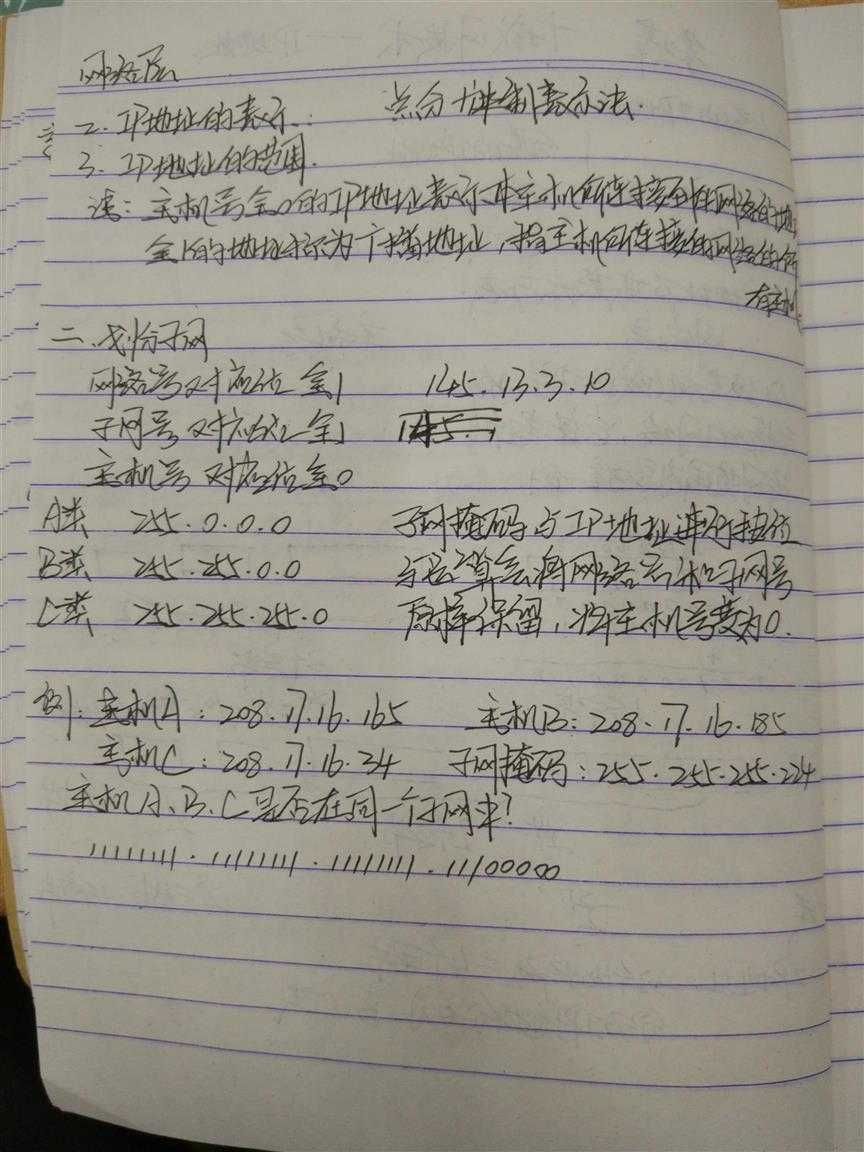 网络层
2. IP地址的表示: 点分十进制表示法.
3. IP地址的范围.
注: 主机号全0的IP地址表示本主机所连接到的网络的地址
全1的地址称为广播地址, 指主机所连接的网络的所
有主机.
二.划分子网
网络号对应位全1 145.13.3.10
子网号对应位全1 145.
主机号对应位全0
A类 255.0.0.0 子网掩码与IP地址进行按位
B类 255.255.0.0 与运算会将网络号和子网号
C类 255.255.255.0 原样保留, 将主机号变为0.
例: 主机A: 208.17.16.165 主机B: 208.17.16.185
主机C: 208.17.16.34 子网掩码: 255.255.255.224
主机A、B、C是否在同一个子网中?
11111111.11111111.11111111.11100000